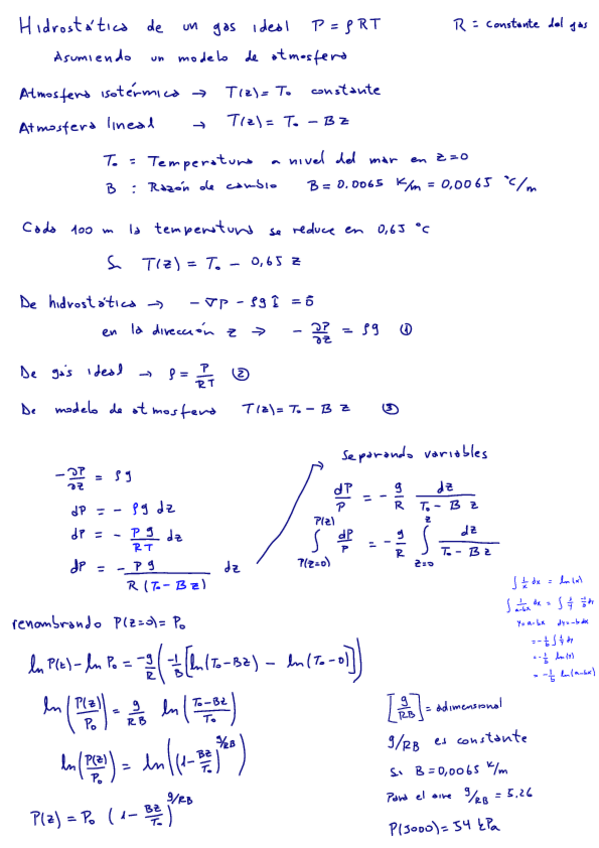 Hidrostática de un gas ideal P = ρRT R = constante del gas
Asumiendo un modelo de atmosfera
Atmosfera isotérmica → T(z) = T₀ constante
Atmosfera lineal → T(z) = T₀ - Bz
T₀ = Temperatura a nivel del mar en z=0
B : Razón de cambio B = 0.0065 K/m = 0,0065 °C/m
Cada 100 m la temperatura se reduce en 0,65 °C
Si T(z) = T₀ - 0,65 z
De hidrostática → -∇P - ρg î = ō
en la dirección z → -∂P/∂z = ρg ①
De gas ideal → ρ = P/RT ②
De modelo de atmosfera T(z) = T₀ - B z ③
-∂P/∂z = ρg
dP = - ρg dz
dP = - Pg/RT dz
dP = - Pg/R(T₀ - Bz) dz
Separando variables
dP/P = - g/R dz/(T₀ - B z)
∫ P(z=0) P(z) dP/P = - g/R ∫ z=0 z dz/(T₀ - Bz)
∫ 1/x dx = ln(x)
∫ 1/(a-bx) dx = ∫ 1/y · -1/b dy
y = a-bx dy = -b dx
= -1/b ∫ 1/y dy
= -1/b ln(y)
= -1/b ln(a-bx)
renombrando P(z=0) = P₀
ln P(z) - ln P₀ = -g/R (-1/B [ln(T₀-Bz) - ln(T₀-0)])
ln(P(z)/P₀) = g/RB ln((T₀-Bz)/T₀)
ln(P(z)/P₀) = ln((1 - Bz/T₀)^g/RB)
P(z) = P₀ (1 - Bz/T₀)^g/RB
[g/RB] = adimensional
g/RB es constante
Si B = 0,0065 K/m
Para el aire g/RB = 5.26
P(5000) = 54 kPa